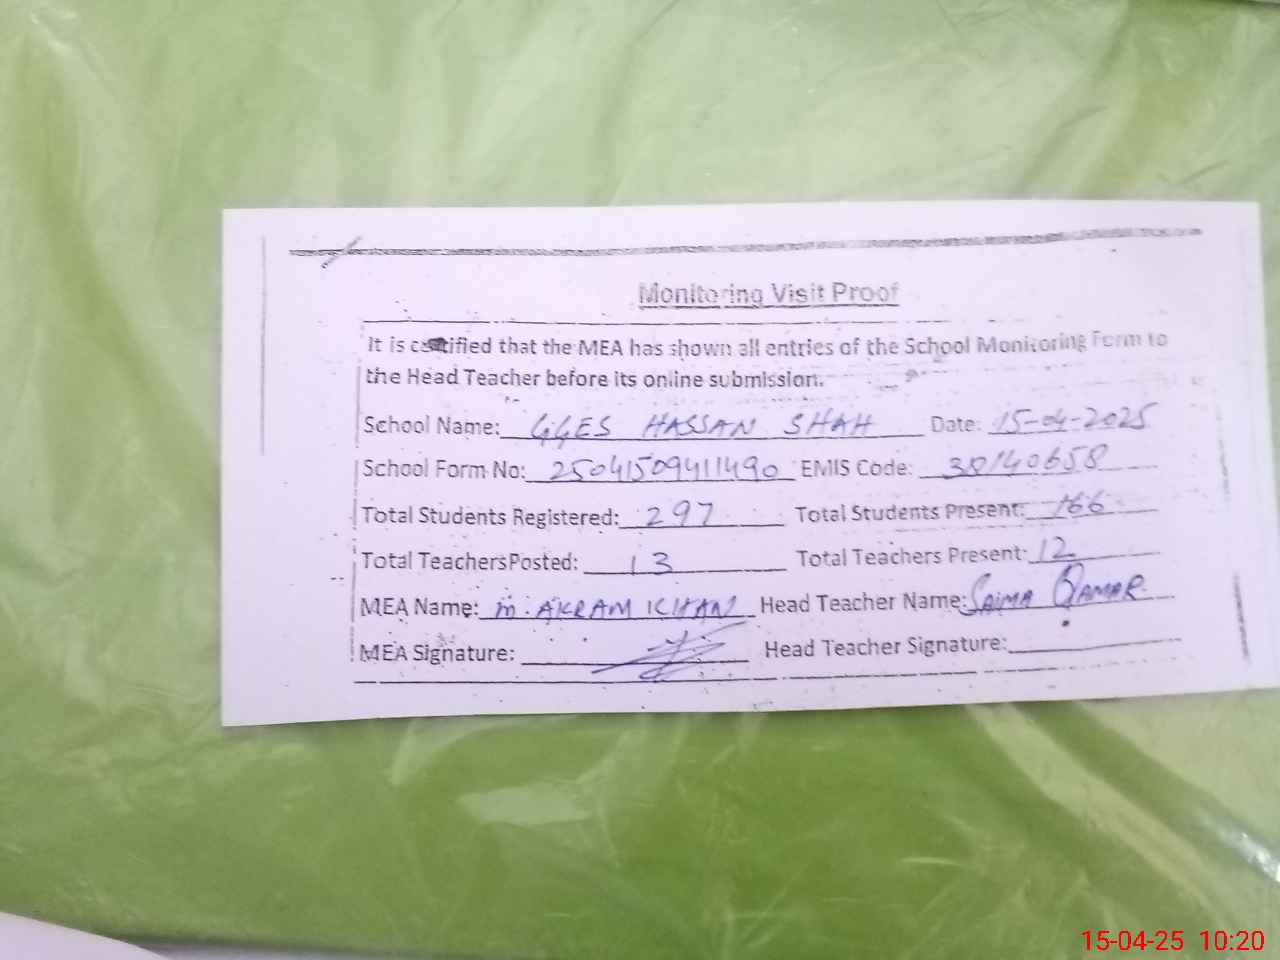 Monitoring Visit Proof
It is certified that the MEA has shown all entries of the School Monitoring Form to
the Head Teacher before its online submission.
School Name: GGES HASSAN SHAH Date: 15-04-2025
School Form No: 25041509411490 EMIS Code: 38140658
Total Students Registered: 297 Total Students Present: 166
Total Teachers Posted: 13 Total Teachers Present: 12
MEA Name: M. AKRAM KHAN Head Teacher Name: SAIMA QAMAR
MEA Signature: Head Teacher Signature:
15-04-25 10:20